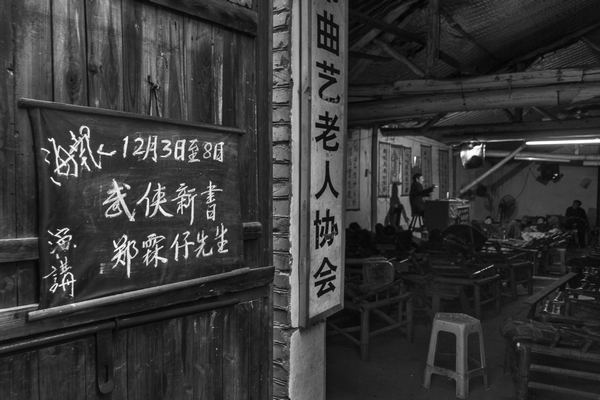 海报
12月3日至8日
武侠新書
郑霖仔先生
演講
曲艺老人协会